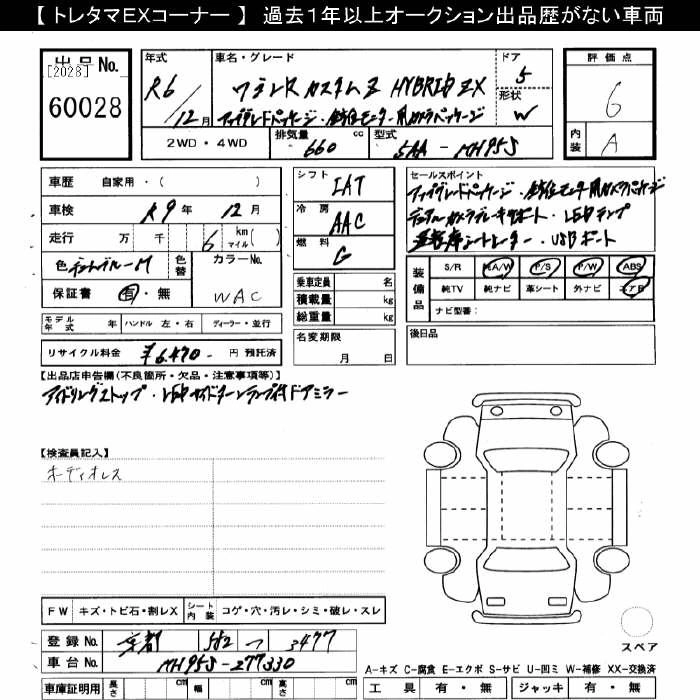 【 トレタマEXコーナー 】 過去1年以上オークション出品歴がない車両
出品 No.
[2028]
60028
年式
R6/12月
車名・グレード
ワゴンR カスタムZ HYBRID ZX
アップグレードパッケージ・全方位モニター用カメラパッケージ
ドア
5
形状
W
評価点
6
内装
A
2WD・4WD
排気量
660 cc
型式
5AA - MH95S
車歴 自家用・( )
車検 R9年 12月
走行 万 千 6 km マイル ( )
色 色替 カラーNo.
WAC
保証書 有・無
モデル年式 年 ハンドル 左・右 ディーラー・並行
リサイクル料金 ¥6,470- 円 預託済
シフト IAT
冷房 AAC
燃料 G
乗車定員 名
積載量 kg
総重量 kg
名変期限
月 日
セールスポイント
アップグレードパッケージ・全方位モニター用カメラパッケージ
デュアルカメラブレーキサポート・LEDランプ
運転席シートヒーター・USBポート
装備品
S/R 純A/W P/S P/W ABS
純TV 純ナビ 革シート 外ナビ エアB
ナビ型番:
後日品
【出品店申告欄(不良箇所・欠品・注意事項等)】
アイドリングストップ・LEDサイドターンランプ付ドアミラー
【検査員記入】
ホディオレス
FW キズ・トビ石・割レX シート内装 コゲ・穴・汚レ・シミ・破レ・スレ
登録 No. 京都 582 つ 3477
車台 No. MH95S-277330
車庫証明用 長さ cm 幅 cm 高さ cm
スペア
A-キズ C-腐食 E-エクボ S-サビ U-凹ミ W-補修 XX-交換済
工具 有・無 ジャッキ 有・無